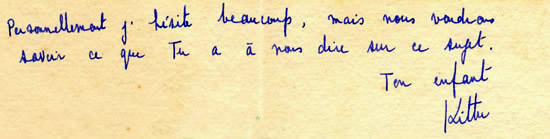 Personnellement j. hésite beaucoup, mais nous voudrions
savoir ce que Tu a à nous dire sur ce sujet.
Ton enfant
Kittu